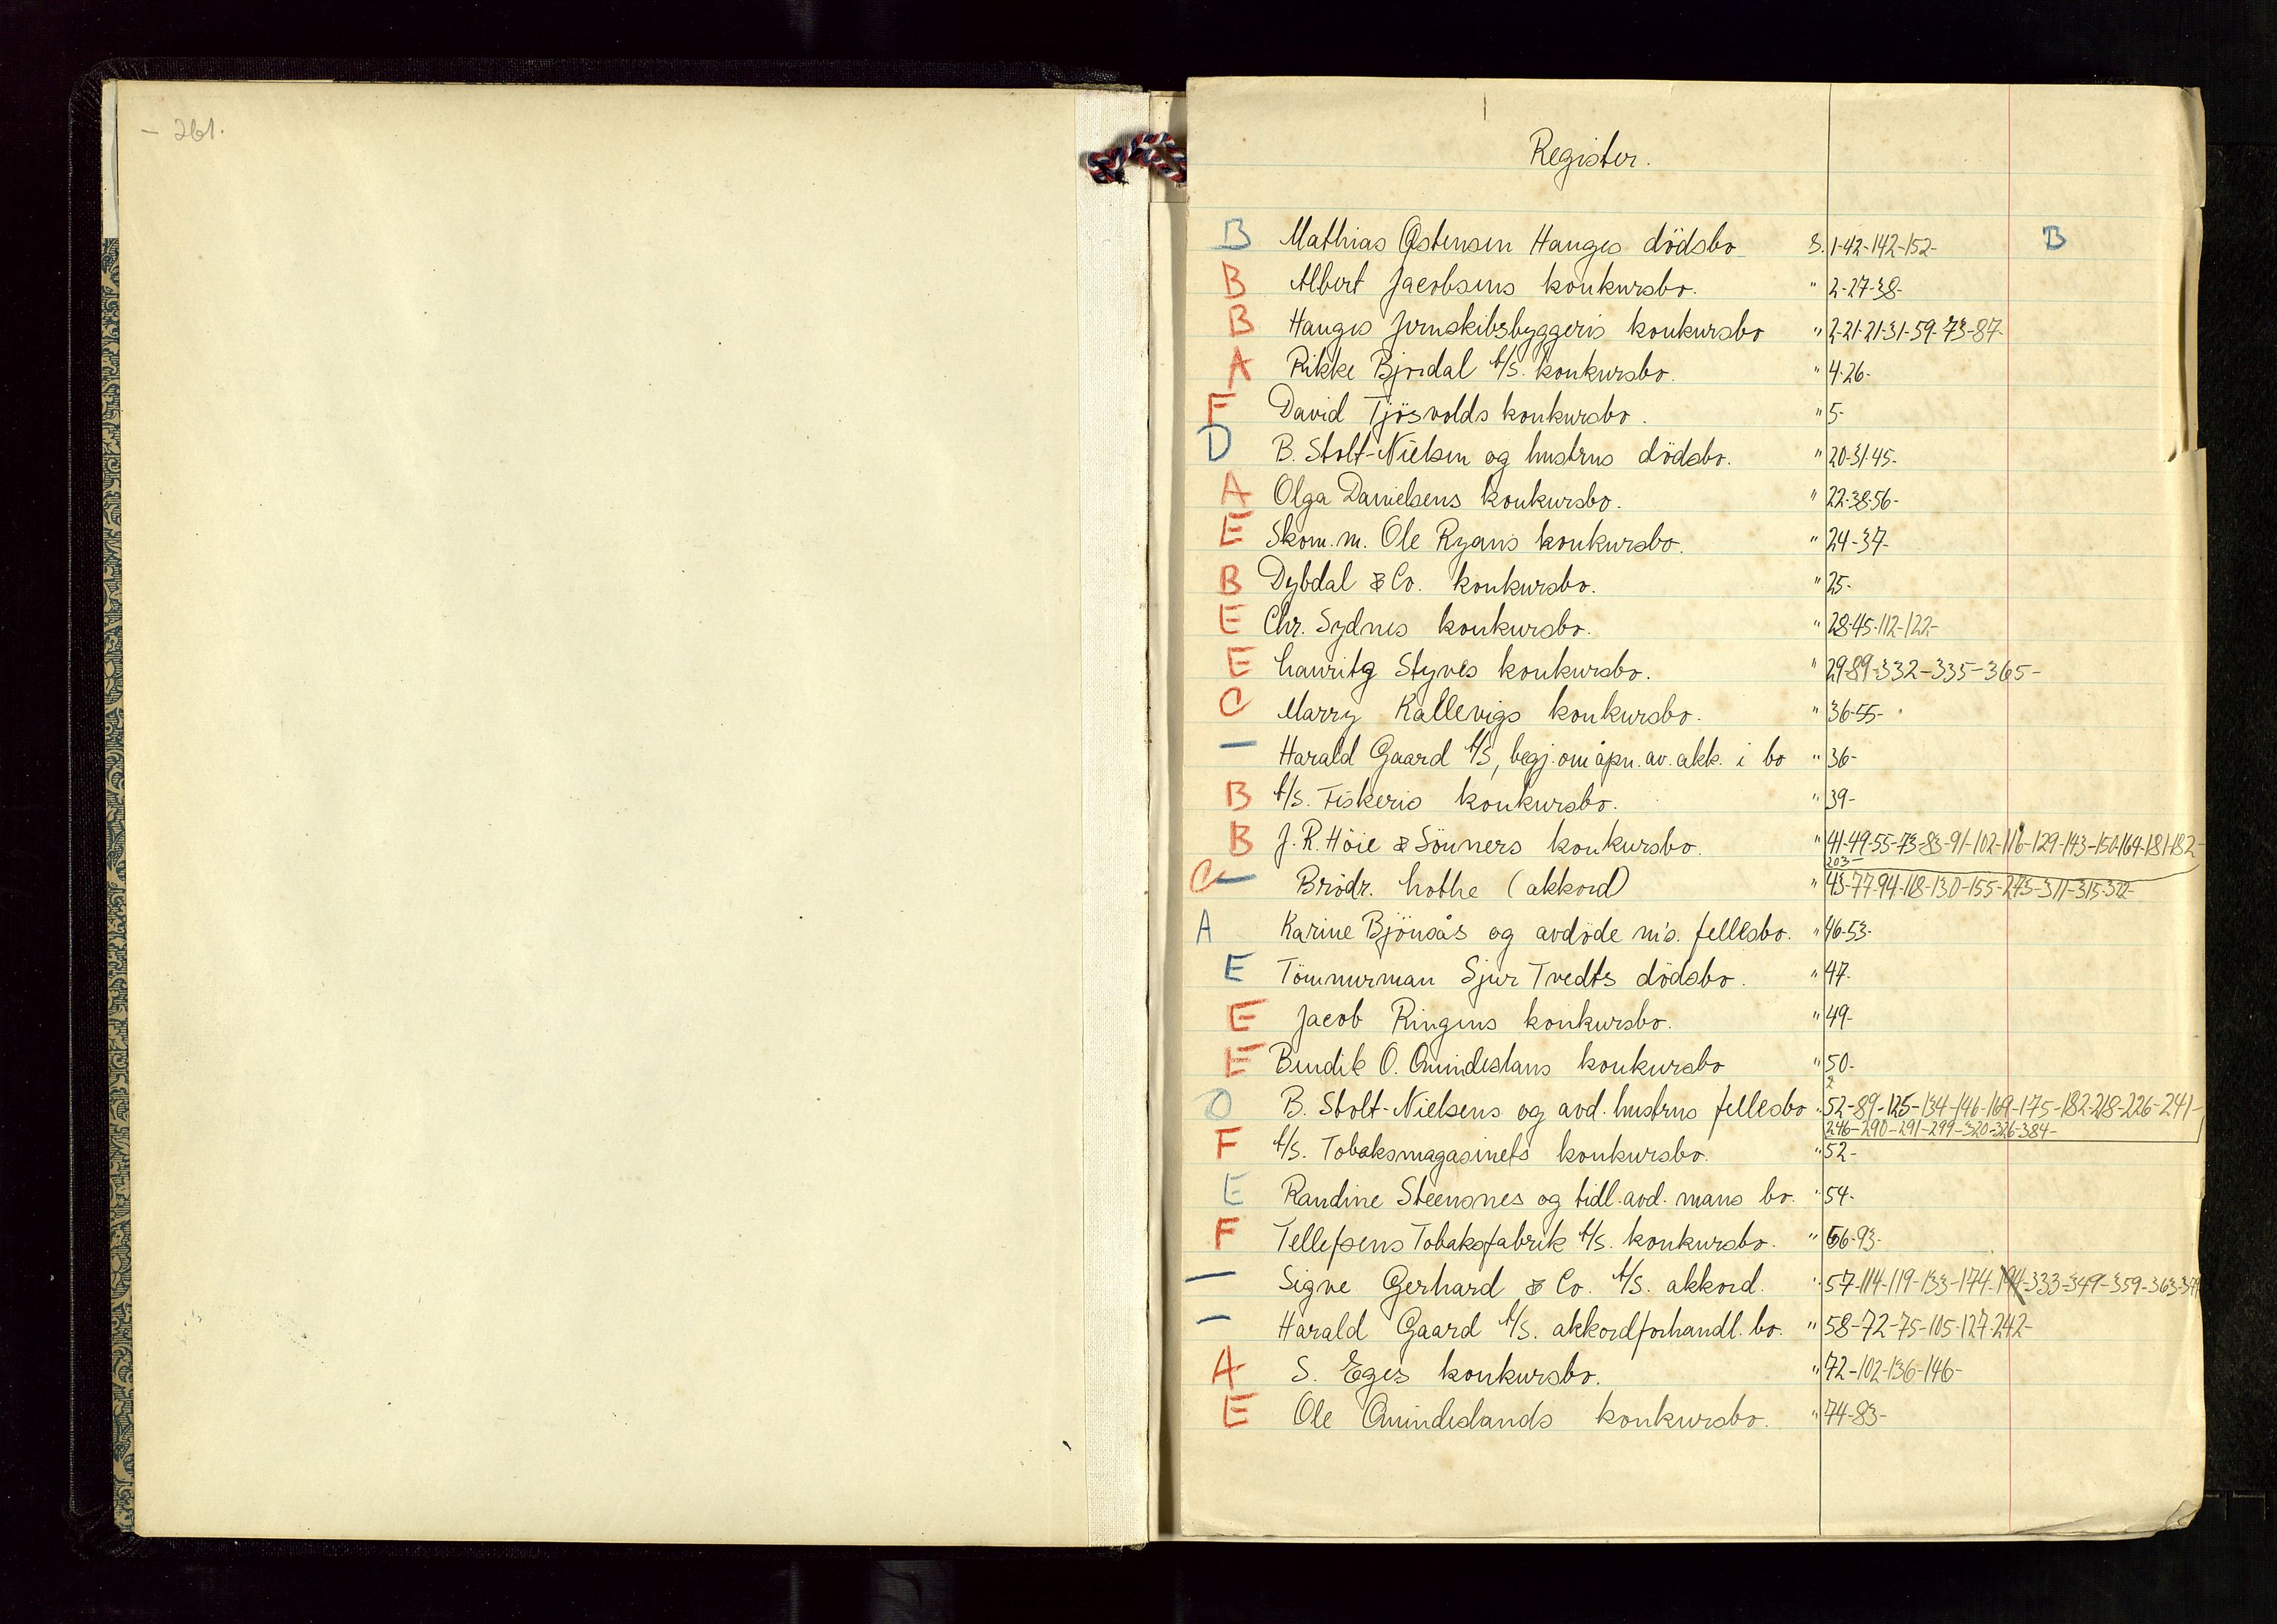 - 261.
Register.
B Mathias Østensen Hauges dödsbo S. 1-42-142-152- B
B Albert Jacobsens konkursbo. " 2-27-38-
B Hauges Jernskibsbyggeris konkursbo " 2-21-21-31-59-73-87-
A Rikke Bjordal A/S. konkursbo. " 4-26-
F David Tjösvolds konkursbo. " 5-
D B. Stolt-Nielsen og hustrus dödsbo. " 20-31-45-
A Olga Danielsens konkursbo. " 22-38-56-
E Skom. m. Ole Ryans konkursbo. " 24-37-
B Dybdal & Co. konkursbo. " 25-
E Chr. Sydnes konkursbo. " 28-45-112-122-
E Lauritz Styves konkursbo. " 29-89-332-335-365-
C Marry Kallevigs konkursbo. " 36-55-
- Harald Gaard A/S, begj. om åpn. av. akk. i bo " 36-
B A/S. Fiskeris konkursbo. " 39-
B J. R. Höie & Sönners konkursbo. " 41-49-55-73-83-91-102-116-129-143-150-164-181-182-
203-
C - Brödr. Lothe (akkord) " 43-77-94-118-130-155-273-311-315-322-
A Karine Bjönsås og avdöde m's. fellesbo. " 46-53-
E Tömmerman Sjur Tvedts dödsbo. " 47-
E Jacob Ringens konkursbo. " 49-
E Bendik O. Omindeslans konkursbo " 50-
2
D B. Stolt-Nielsens og avd. hustrus fellesbo " 52-89-125-134-146-169-175-182-218-226-241-
246-290-291-299-320-326-384-
F A/S. Tobaksmagasinets konkursbo. " 52-
E Randine Steensnes og tidl. avd. mans bo. " 54-
F Tellefsens Tobaksfabrik A/S. konkursbo. " 56-93-
- Signe Gerhard & Co. A/S. akkord. " 57-114-119-133-174-194-333-349-359-363-379
- Harald Gaard A/S. akkordforhandl. bo. " 58-72-75-105-127-242-
A S. Eges konkursbo. " 72-102-136-146-
E Ole Omindeslands konkursbo. " 74-83-